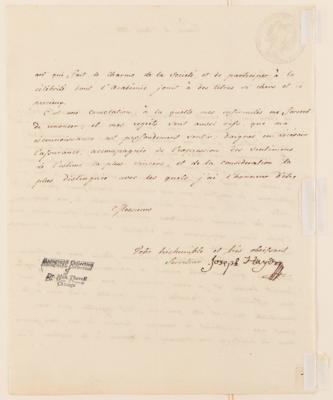 art qui fait le charme de la Société et de participer à la
célébrité dont l'Académie jouit à des titres si chers et si
précieux.
C'est une consolation, à la quelle mes infirmités me forcent
de renoncer, et mes regrets sont aussi vifs que ma
reconnaissance est profondement sentie; daignez en recevoir
l'assurance, accompagnée de l'expression des sentimens
de l'estime la plus sincere, et de la consideration la
plus distinguée avec les quels j'ai l'honneur d'etre
Messieurs
Votre trèshumble et très obeissant
Serviteur Joseph Haydn
Chicago